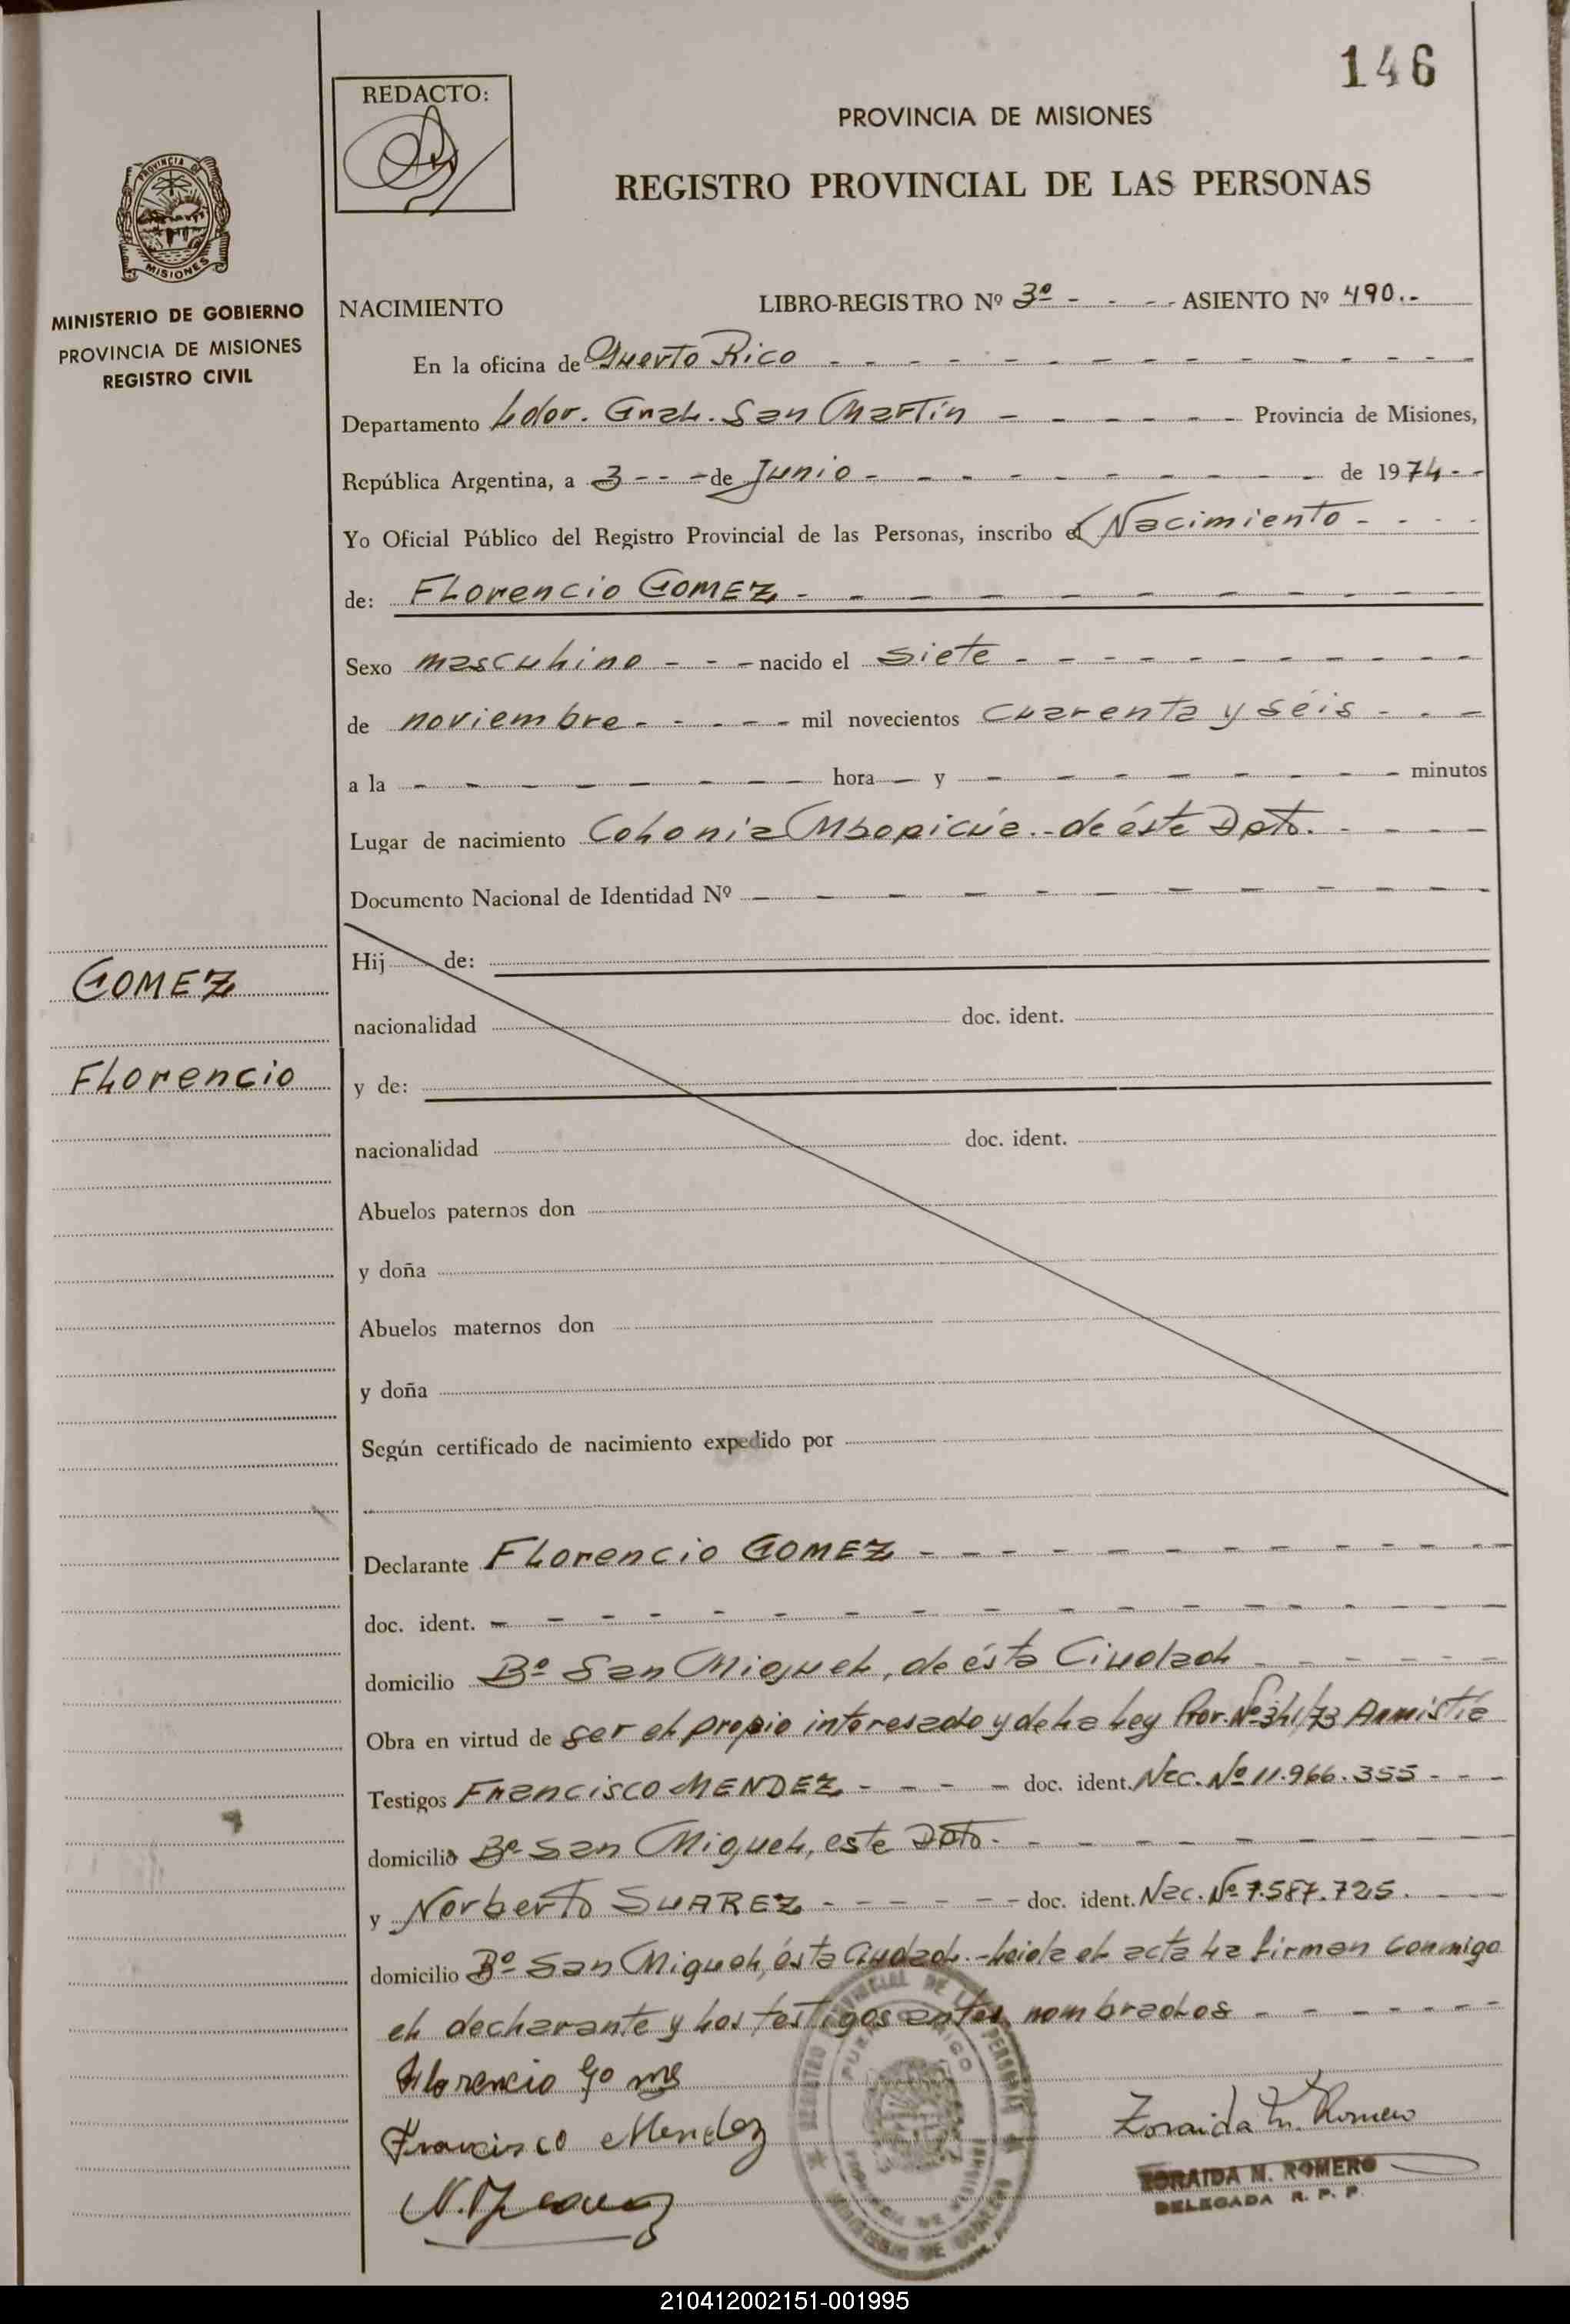 146
REDACTO:
PROVINCIA DE MISIONES
REGISTRO PROVINCIAL DE LAS PERSONAS
PROVINCIA DE
MISIONES
MINISTERIO DE GOBIERNO
PROVINCIA DE MISIONES
REGISTRO CIVIL
NACIMIENTO LIBRO-REGISTRO Nº 3º - - - - ASIENTO Nº 490.-
En la oficina de Puerto Rico - - - - - - - - - - - -
Departamento Ldor. Gral. San Martín - - - - - - Provincia de Misiones,
República Argentina, a 3 - - - de Junio - - - - - - - - - de 1974 - -
Yo Oficial Público del Registro Provincial de las Personas, inscribo el Nacimiento - - - -
de: Florencio GOMEZ - - - - - - - - -
Sexo masculino - - - nacido el siete - - - - - - - - - - -
de noviembre - - - - - mil novecientos cuarenta y séis - - -
a la - - - - - - - hora - y - - - - - - - minutos
Lugar de nacimiento Colonia Mbopicúa.- de éste Dpto. - - - -
Documento Nacional de Identidad Nº - - - - - - - - - -
Hij de:
GOMEZ
nacionalidad doc. ident.
Florencio
y de:
nacionalidad doc. ident.
Abuelos paternos don
y doña
Abuelos maternos don
y doña
Según certificado de nacimiento expedido por
Declarante Florencio GOMEZ - - - - - - - - - - -
doc. ident. - - - - - - - - - - - - - -
domicilio Bº San Miguel, de ésta Ciudad - - - - - -
Obra en virtud de ser el propio interesado y de la Ley Prov. Nº 341/73 Amnistía
Testigos Francisco MENDEZ - - - - doc. ident. Nac. Nº 11.966.355 - - -
domicilio Bº San Miguel, este Dpto. - - - - - - - -
y Norberto SUAREZ - - - - - - doc. ident. Nac. Nº 7.587.725. - - -
domicilio Bº San Miguel, ésta Ciudad.- leida el acta la firman conmigo
el declarante y los testigos antes nombrados - - - - - - -
Florencio Go mes
Francisco Mendez
Zoraida M. Romero
ZORAIDA M. ROMERO
DELEGADA R. P. P.
REGISTRO PROVINCIAL DE LAS PERSONAS
PUERTO RICO
PROVINCIA DE MISIONES
MINISTERIO DE GOBIERNO
210412002151-001995